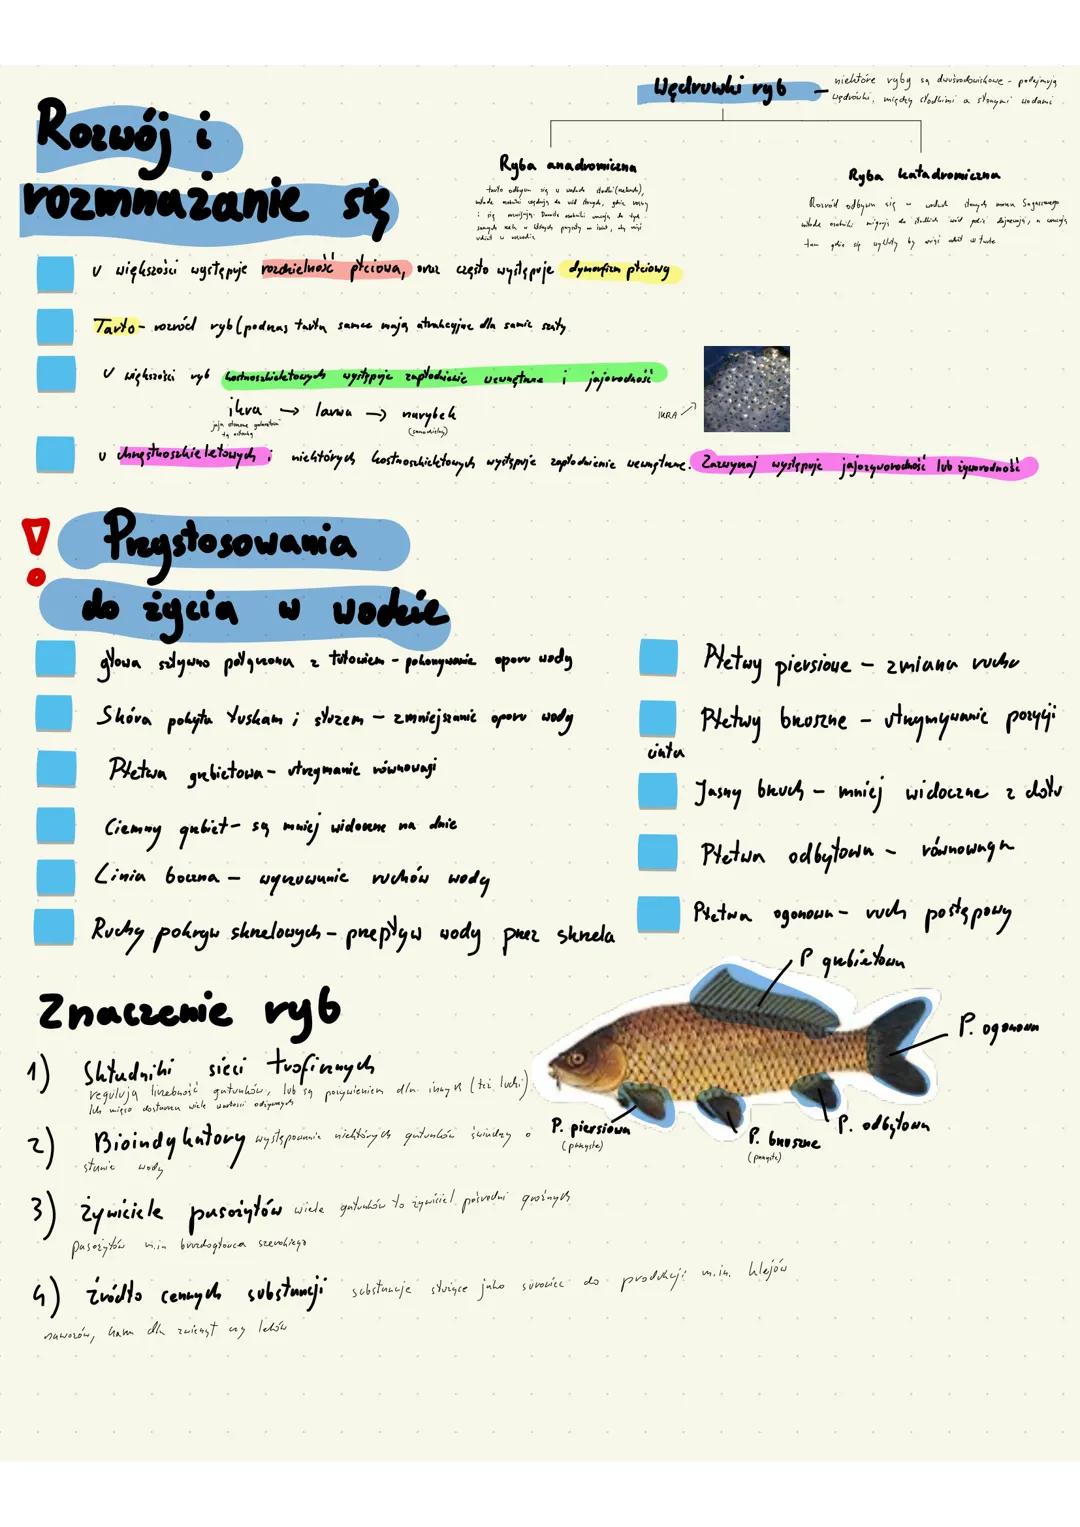 Rozwój i
rozmnażanie się
Wędrówki ryb - niektóre ryby są dwuśrodowiskowe - podejmują
wędrówki, między słodkimi a słonymi wodami
Ryba anadromiczna
tarło odbywa się w wodach
Ryba katadromiczna
Rozród odbywa się w wodach słonych morza Sargassowego
młode osobniki migrują do słodkich wód gdzie dojrzewają, a wracają
tam gdzie się wykluły by wziąć udział w tarle
U większości występuje rozdzielność płciowa, oraz często występuje dymorfizm płciowy
Tarło - rozród ryb (podczas tarła samce mają atrakcyjne dla samic szaty
U większości ryb kostnoszkieletowych występuje zapłodnienie zewnętrzne i jajorodność
ikra → larwa → narybek
jaja otoczone galaretowa
tą osłonką
(samodzielny)
IKRA
U chrzęstnoszkieletowych i niektórych kostnoszkieletowych występuje zapłodnienie wewnętrzne. Zazwyczaj występuje jajożyworodność lub żyworodność
Przystosowania
do życia w wodzie
głowa sztywno połączona z tułowiem - pokonywanie oporu wody
Skóra pokryta łuskami i śluzem - zmniejszanie oporu wody
Płetwa grzbietowa - utrzymanie równowagi
Ciemny grzbiet - są mniej widoczne na dnie
Linia boczna - wyczuwanie ruchów wody
Ruchy pokryw skrzelowych - przepływ wody przez skrzela
Płetwy piersiowe - zmiana ruchu
Płetwy brzuszne - utrzymywanie pozycji
ciała
Jasny brzuch - mniej widoczne z dołu
Płetwa odbytowa - równowaga
Płetwa ogonowa - ruch postępowy
P grzbietowa
P. ogonowa
P. odbytowa
P. brzuszne
(parzyste)
P. piersiowa
(parzyste)
Znaczenie ryb
1) Składniki sieci troficznych
regulują liczebność gatunków, lub są pożywieniem dla innych (też ludzi)
Ich mięso dostarcza wiele wartości odżywczych
2) Bioindykatory występowanie niektórych gatunków świadczy o
stanie wody
3) żywiciele pasożytów wiele gatunków to żywiciel pośredni groźnych
pasożytów m.in bruzdogłowca szerokiego
4) źródło cennych substancji substancje służące jako surowiec do produkcji m.in. klejów
nawozów, karm dla zwierząt czy leków